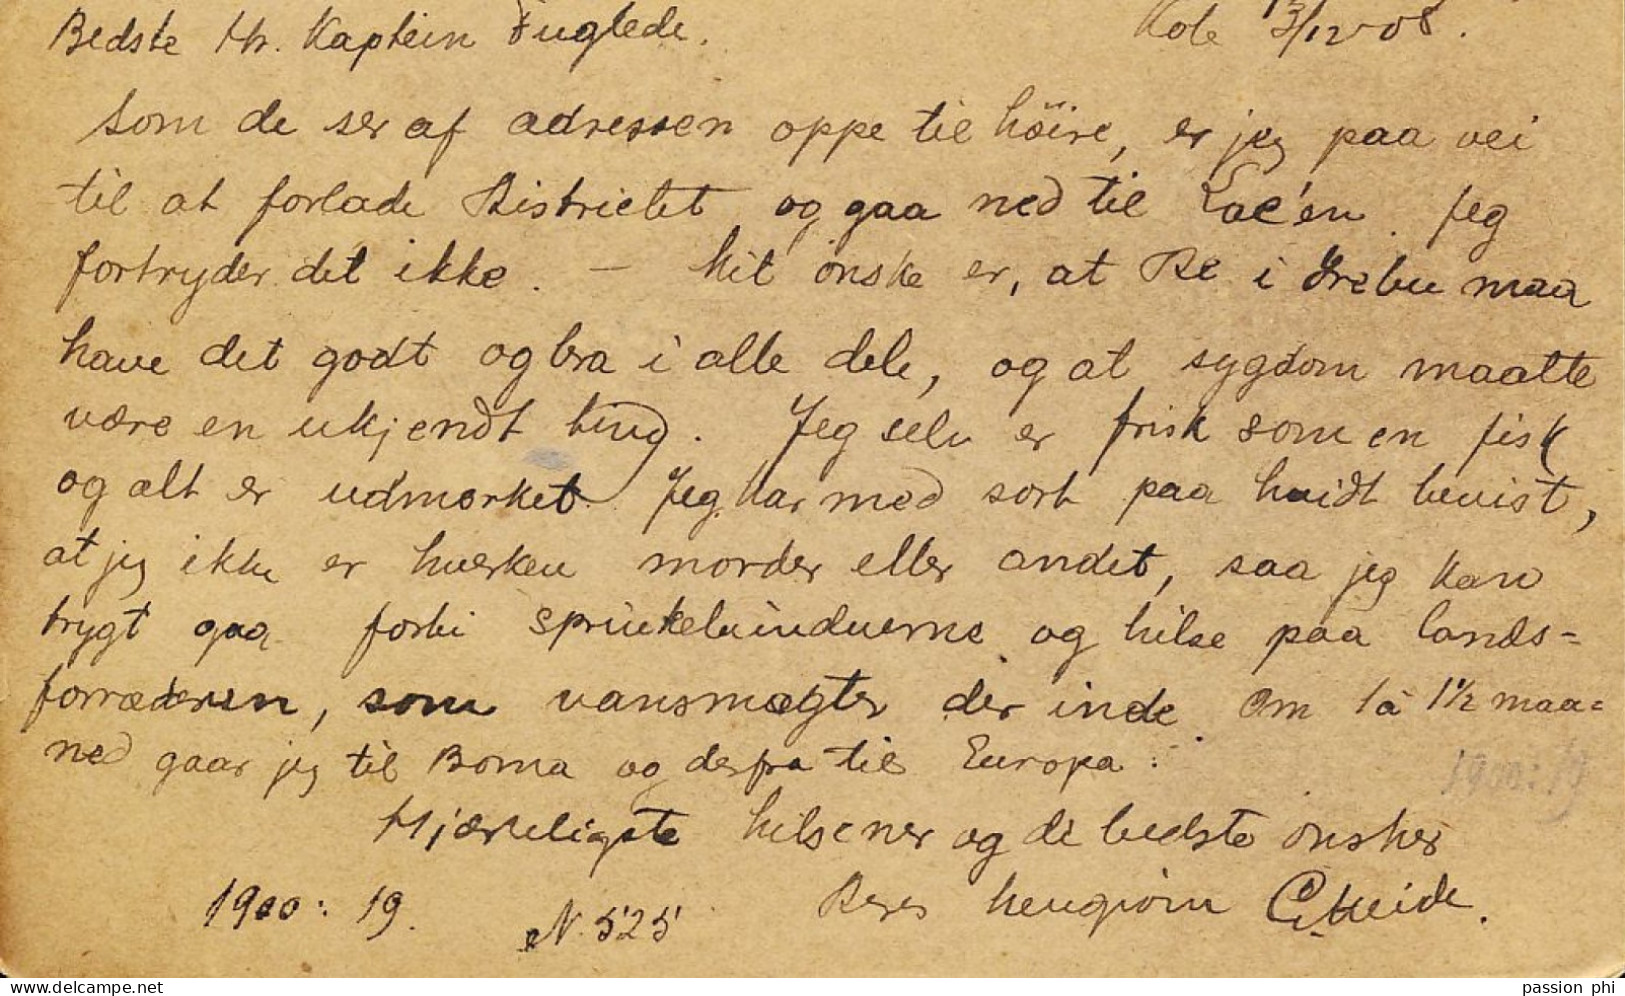 Bedste Hr. Kaptein Fuglede. Kole 13/12-08.
Som de ser af adressen oppe til höire, er jeg paa vei
til at forlade Districtet og gaa ned til Lac'en. Jeg
fortryder det ikke. — Mit önske er, at De i Irebu maa
have det godt og bra i alle dele, og at sygdom maatte
være en ukjendt ting. Jeg selv er frisk som en fisk
og alt er udmerket. Jeg har med sort paa hvidt bevist,
at jeg ikke er hverken morder eller andet, saa jeg kan
trygt gaa forbi sprinkelvinduerne og hilse paa lands=
forræderen, som vansmægter der inde. Om 1 à 1½ maa=
ned gaar jeg til Boma og derfra til Europa.
1900:19
Hjærteligste hilsener og de bedste önsker
1900: 19. N. 525 Deres hengivne
delcampe.net
passion phi